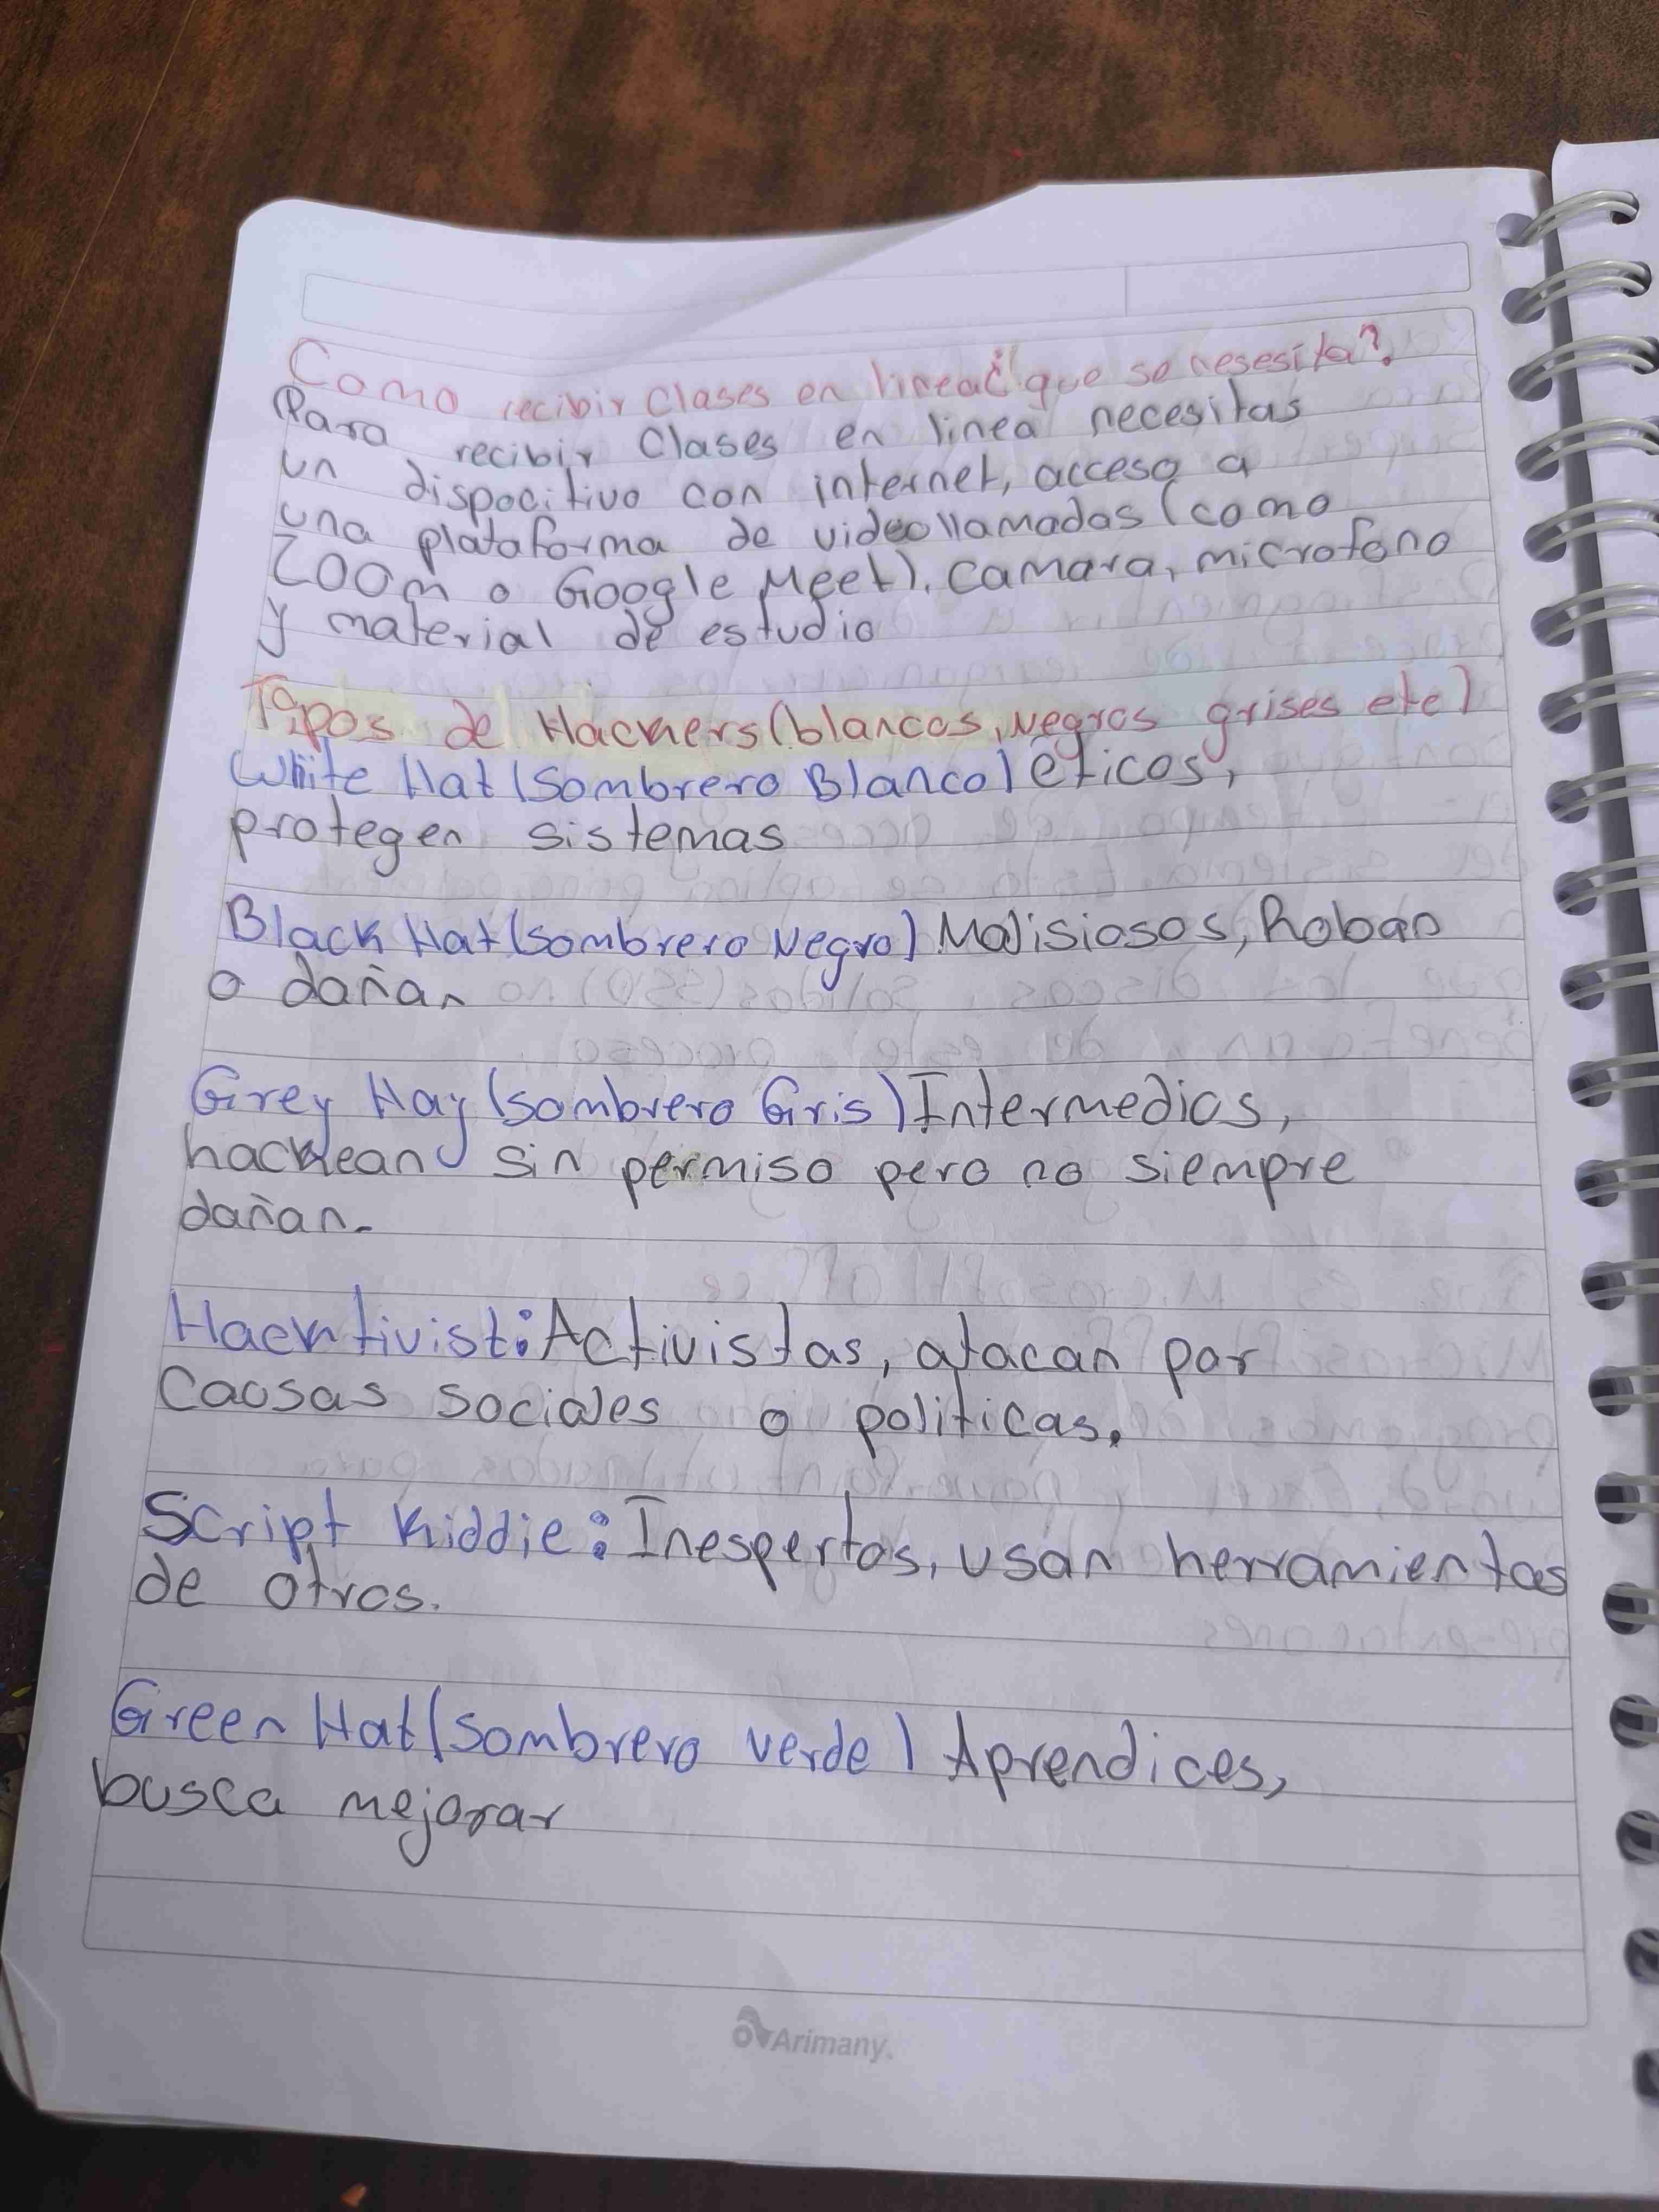 Como recibir Clases en linea¿ que se nesesita?.
Para recibir Clases en linea necesitas
un dispocitivo con internet, acceso a
una plataforma de videollamadas (como
Zoom o Google Meet), camara, microfono
y material de estudio
Tipos de Hackers (blancos, Negros grises etc)
White Hat (Sombrero Blanco) éticos,
protegen sistemas
Black Hat (sombrero Negro) Malisiosos, Roban
o dañan
Grey Hay (sombrero Gris) Intermedios,
hackean sin permiso pero no siempre
dañan.
Hacktivist: Activistas, atacan por
Caosas sociales o politicas.
Script Kiddie: Inespertos, usan herramientas
de otros.
Green Hat (sombrero verde) Aprendices,
busca mejorar
Arimany.